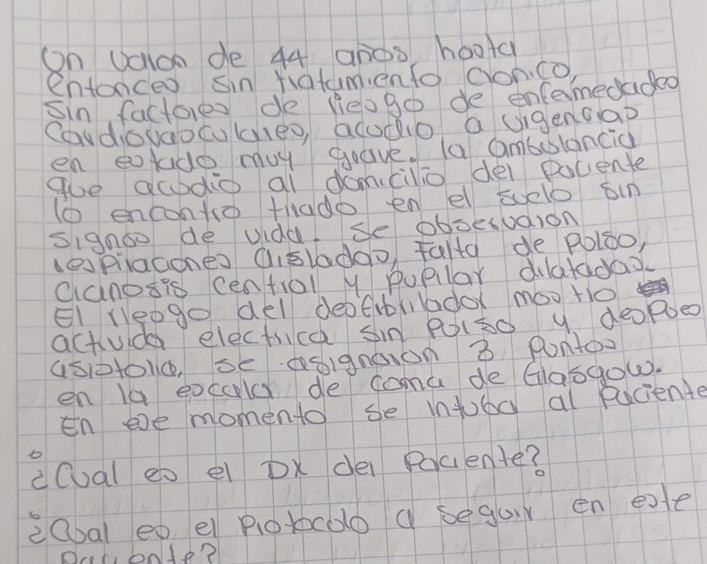 Un varon de 44 años, hasta
entonces sin tratamiento cronico,
sin factores de riesgo de enfermedades
cardiovasculares, acudio a urgencias
en estado muy grave. la ambulancia
que acudio al domicilio del paciente
lo encontro tirado en el suelo sin
signos de vida. Se observaron
respiraciones aisladas, falta de pulso,
cianosis central y pupilar dilatadas.
El riesgo del desfibrilador mostro
actividad electrica sin pulso y despues
asistolia, se asignaron 3 puntos
en la escala de coma de Glasgow.
En ese momento se intuba al paciente
¿Cual es el DX del Paciente?
¿Cual es el Protocolo a seguir en este
paciente?